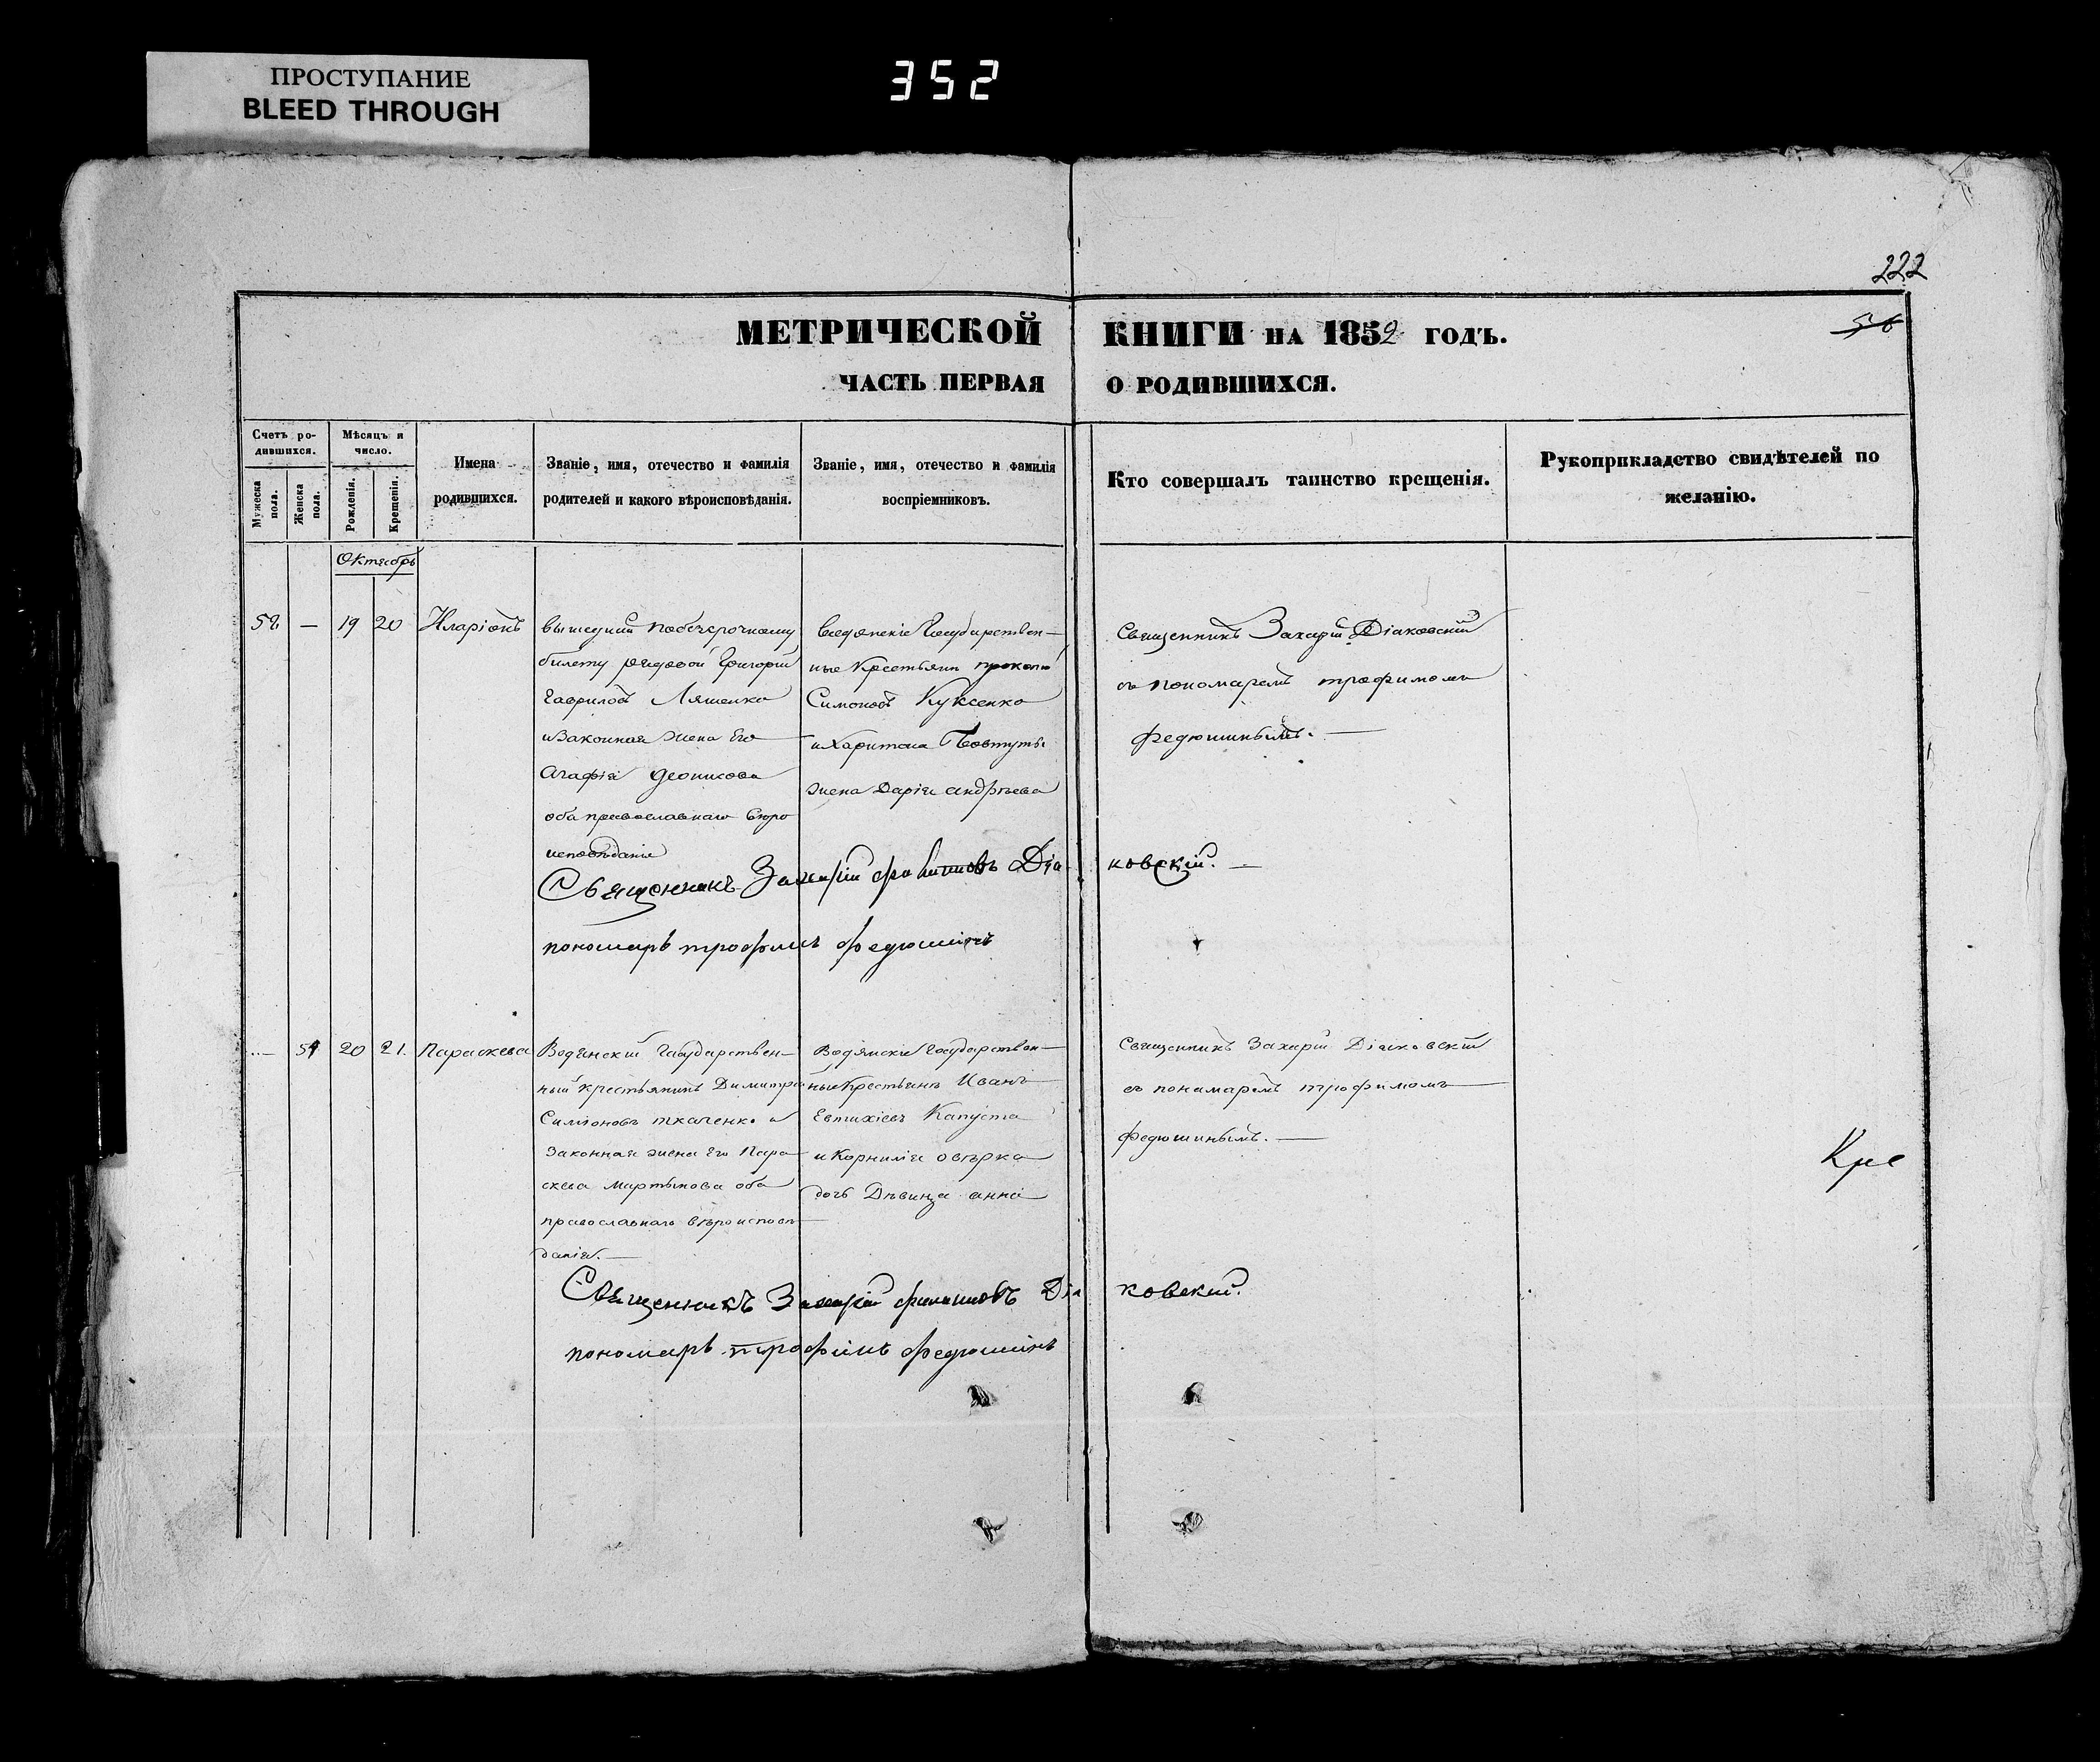 ПРОСТУПАНИЕ
BLEED THROUGH
352
222
МЕТРИЧЕСКОЙ КНИГИ НА 1852 ГОДЪ.
56
ЧАСТЬ ПЕРВАЯ О РОДИВШИХСЯ.
Счетъ ро-
дившихся.
Мужеска
пола.
Женска
пола.
Мѣсяцъ и
число.
Рожденія.
Крещенія.
Имена
родившихся.
Званіе, имя, отечество и фамилія
родителей и какого вѣроисповѣданія.
Званіе, имя, отечество и фамилія
воспріемниковъ.
Кто совершалъ таинство крещенія.
Рукоприкладство свидѣтелей по
желанію.
Октябрь
52 — 19 20 Иларіонъ
вышедшій побезсрочному
билету рядовой Григорій
Гавриловъ Ляшенко
и Законная жена Его
Агафія
оба православнаго вѣро
исповѣданія
Водянскіе Государствен—
ные Крестьяни прокопій
Симоновъ Куксенко
и Харитона
жена Дарія андрѣева
Священникъ Захарій Діаковскій
съ пономаремъ трофимомъ
федюшинымъ. —
Священникъ Захарій филиповъ Діаковскій. —
пономарь трофимъ федюшинъ
— 54 20 21. Параскева
Водянскій Государствен—
ный крестьянинъ Димитрій
Симіоновъ ткаченко и
Законная жена его Пара
скева Мартынова оба
православнаго вѣроисповѣ
данія. —
Водянскіе Государствен—
ные Крестьяне Иванъ
Евтихіевъ Капуста
и Корнилія овѣрка
дочь Дѣвица анна
Священникъ Захарій Діаковскій
съ понамаремъ трофимомъ
федюшинымъ. —
Кре
Священникъ Захарій филиповъ Діаковскій.
пономарь трофимъ федюшинъ